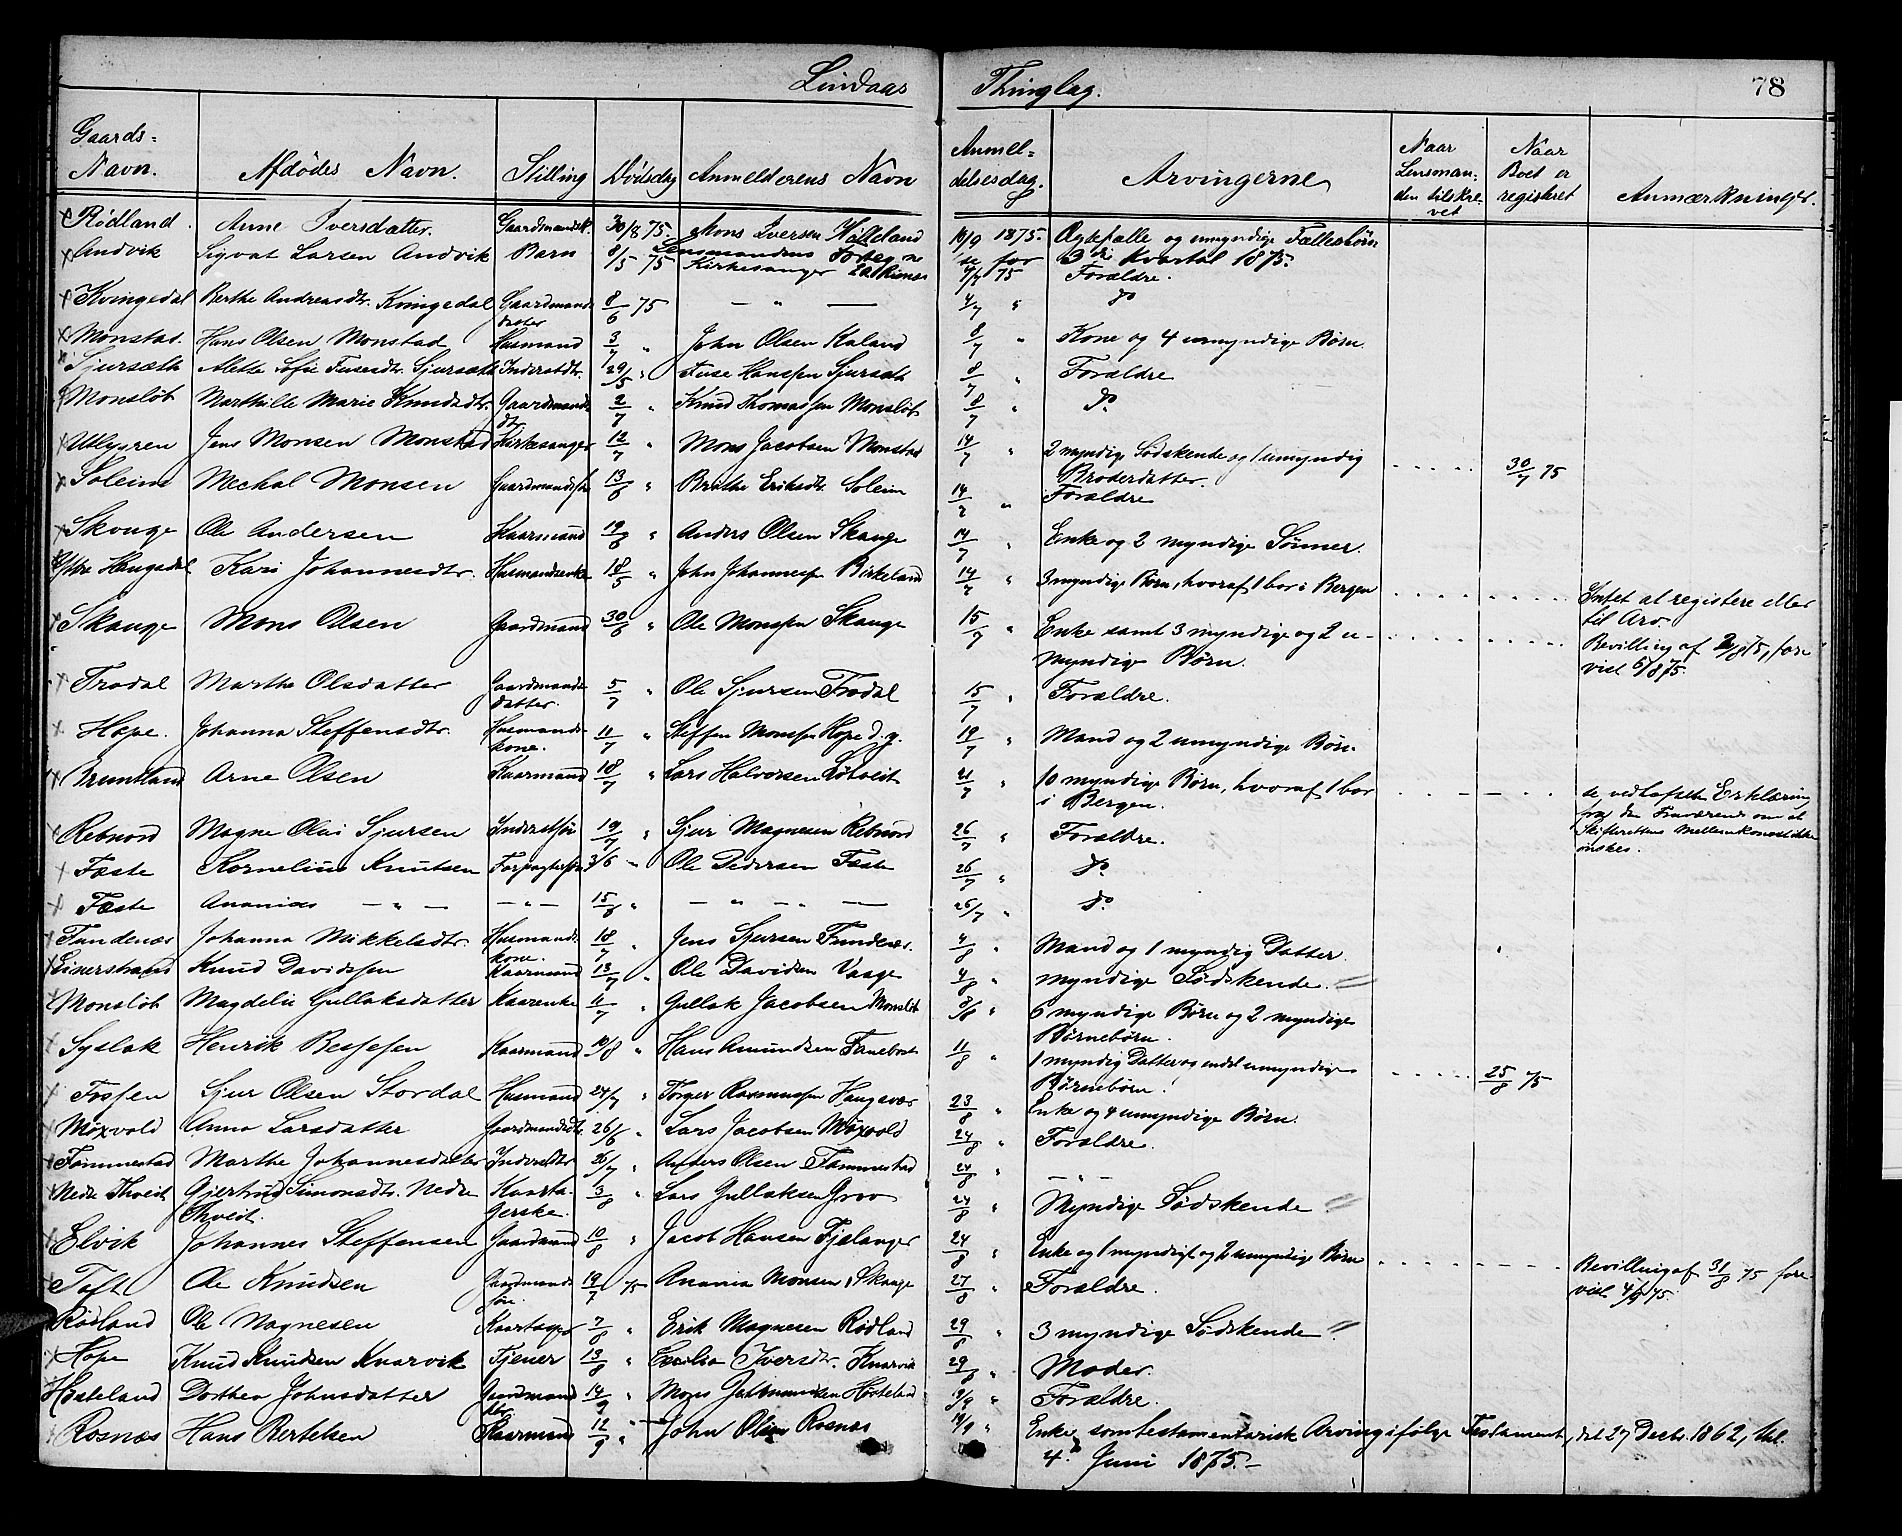 Lindaas Thinglag. 78
Gaards=
Navn. Afdødes Navn. Stilling Dødsdag Anmelderens Navn Anmel=
delsesdag. Arvingerne Naar
Lensman=
den tilskre
vet Naar
Boet er
registreret Anmærkninger.
Rødland Anne Iversdatter. 30/8 75. Mons Iversen 10/9 1875. Ægtefælle og umyndige Fællesbørn
Andvik Sigvat Larsen Andvik Barn 8/5 75 Kirkesanger se for 3die Kvartal 1875.
4/7 75 Forældre.
Kvingedal Berthe Andreasdtr. Kvingedal Gaardmands
datter 8/6 75 — " — 4/7 " do
Monstad Hans Olsen Monstad Husmand 3/7 " John Olsen Kaland 8/7 " Kone og 4 umyndige Børn.
Sjursæth Alette Sofie Sjursæth Inderstdtr. 29/5 " Hanssen Sjursæth 8/7 " Forældre
Monsløt Marthille Marie Knudsdtr. Gaardmands
dtr 2/7 " Knud Thomassen Monsløt 8/7 " do
Jens Monsen Monstad Kirkesanger 12/7 " Mons Jacobsen Monstad 14/7 " 2 myndige Sødskende og 1 umyndig
Broderdatter. 30/7 75
Soleim Mechal Monsen 13/6 " Brithe Eriksdt. Soleim 14/7 " Forældre
Skouge Ole Andersen Kaarmand 19/6 " Anders Olsen Skauge 14/7 " Enke og 2 myndige Sønner.
Kari Johannesdtr. Husmandsenke 18/5 " John Johannessen Birkeland 14/7 " 3 myndige Børn, hvoraf 1 bor i Bergen Intet at registere eller
til Arv
Skauge Mons Olsen Gaardmand 30/6 " Ole Monssen Skauge 15/7 " Enke samt 3 myndige og 2 u-
myndige Børn. Bevilling af 2/8 75, fore
vist 6/8 75.
Trodal Marthe Olsdatter Gaardmands
datter. 5/7 " Ole Sjursen Trodal 15/7 " Forældre.
Hope. Johanna Steffensdtr. Husmands
kone. 11/7 " Steffen Monssen Hope d.y. 19/7 " Mand og 2 umyndige Børn
Arne Olsen Kaarmand 18/7 " Lars Halvorsen 21/7 " 10 myndige Børn, hvoraf 1 bor
i Bergen. se vedhæftede Erklæring
fra om at
Skifterettens Mellemkomst ikke
ønskes.
Rebnord Magne Olai Sjursen 19/7 " Sjur Magnesen Rebnord 26/7 " Forældre.
Fæste Kornelius Knutsen 3/6 " Ole Pedersen Fæste 26/7 " do
Fæste Ananias — " — — " — 15/6 " — " — " — 26/7 " do
Fundenæs Johanna Mikkelsdtr. Husmands
kone. 18/7 " Jens Sjursen Fundenæs. 4/8 " Mand og 1 myndig Datter.
Knud Davidssen Kaarmand 13/7 " Ole Davidsen Vaage 4/8 " myndige Sødskende.
Monsløt Magdeli Gullaksdatter Kaarenke 11/7 " Gullak Jacobsen Monsløt 8/8 " 6 myndige Børn og 2 myndige
Børnebørn.
Syslak Henrik Kaarmand 10/8 " Hans Amundsen Fanebost 11/8 " 1 myndig Datter og endel umyndige
Børnebørn. 25/8 75
Fossen Sjur Olsen Stordal Husmand 24/7 " Torger Rasmussen Haugsvær 23/8 " Enke og 4 umyndige Børn.
Møxvold Anna Larsdatter Gaardmandsdt. 26/6 " Lars Jacobsen Møxvold 24/8 " Forældre.
Fammestad Marthe Johannesdatter Inderstdtr 26/7 " Anders Olsen Fammestad 24/8 " — " —
Nedre Thveit Gjertrud Simonsdt. Nedre
Thveit. Kaarta-
gerske. 3/8 " Lars Gullaksen Groo 24/8 " Myndige Sødskende
Elvik Johannes Steffensen Gaardmand 10/8 " Jacob Hansen Fjelanger 24/8 " Enke og 1 myndigt og 2 umyndige Børn Bevilling af 31/8 75 fore
vist 4/9 75.
Toft Ole Knudsen Gaardmands
søn. 19/7 75 Anania Monsen Skauge 27/8 " Forældre.
Rødland Ole Magnesen Kaartager 7/8 " Erik Magnesen Rødland 29/8 " 3 myndige Sødskende
Hope Knud Knudsen Knarvik Tjener 13/8 " Iversdtr. Knarvik 29/8 " Moder.
Høsteland Dorthea Johnsdatter Gaardmand
dtr 14/9 " Mons Høsteland Forældre.
Rosnæs Hans Bertelsen Kaarmand 12/9 " John Olsen Rosnæs 14/9 " Enke, som testamentarisk Arving ifølge Testament, dat. 27 Decbr. 1862,
4de Juni 1875.—